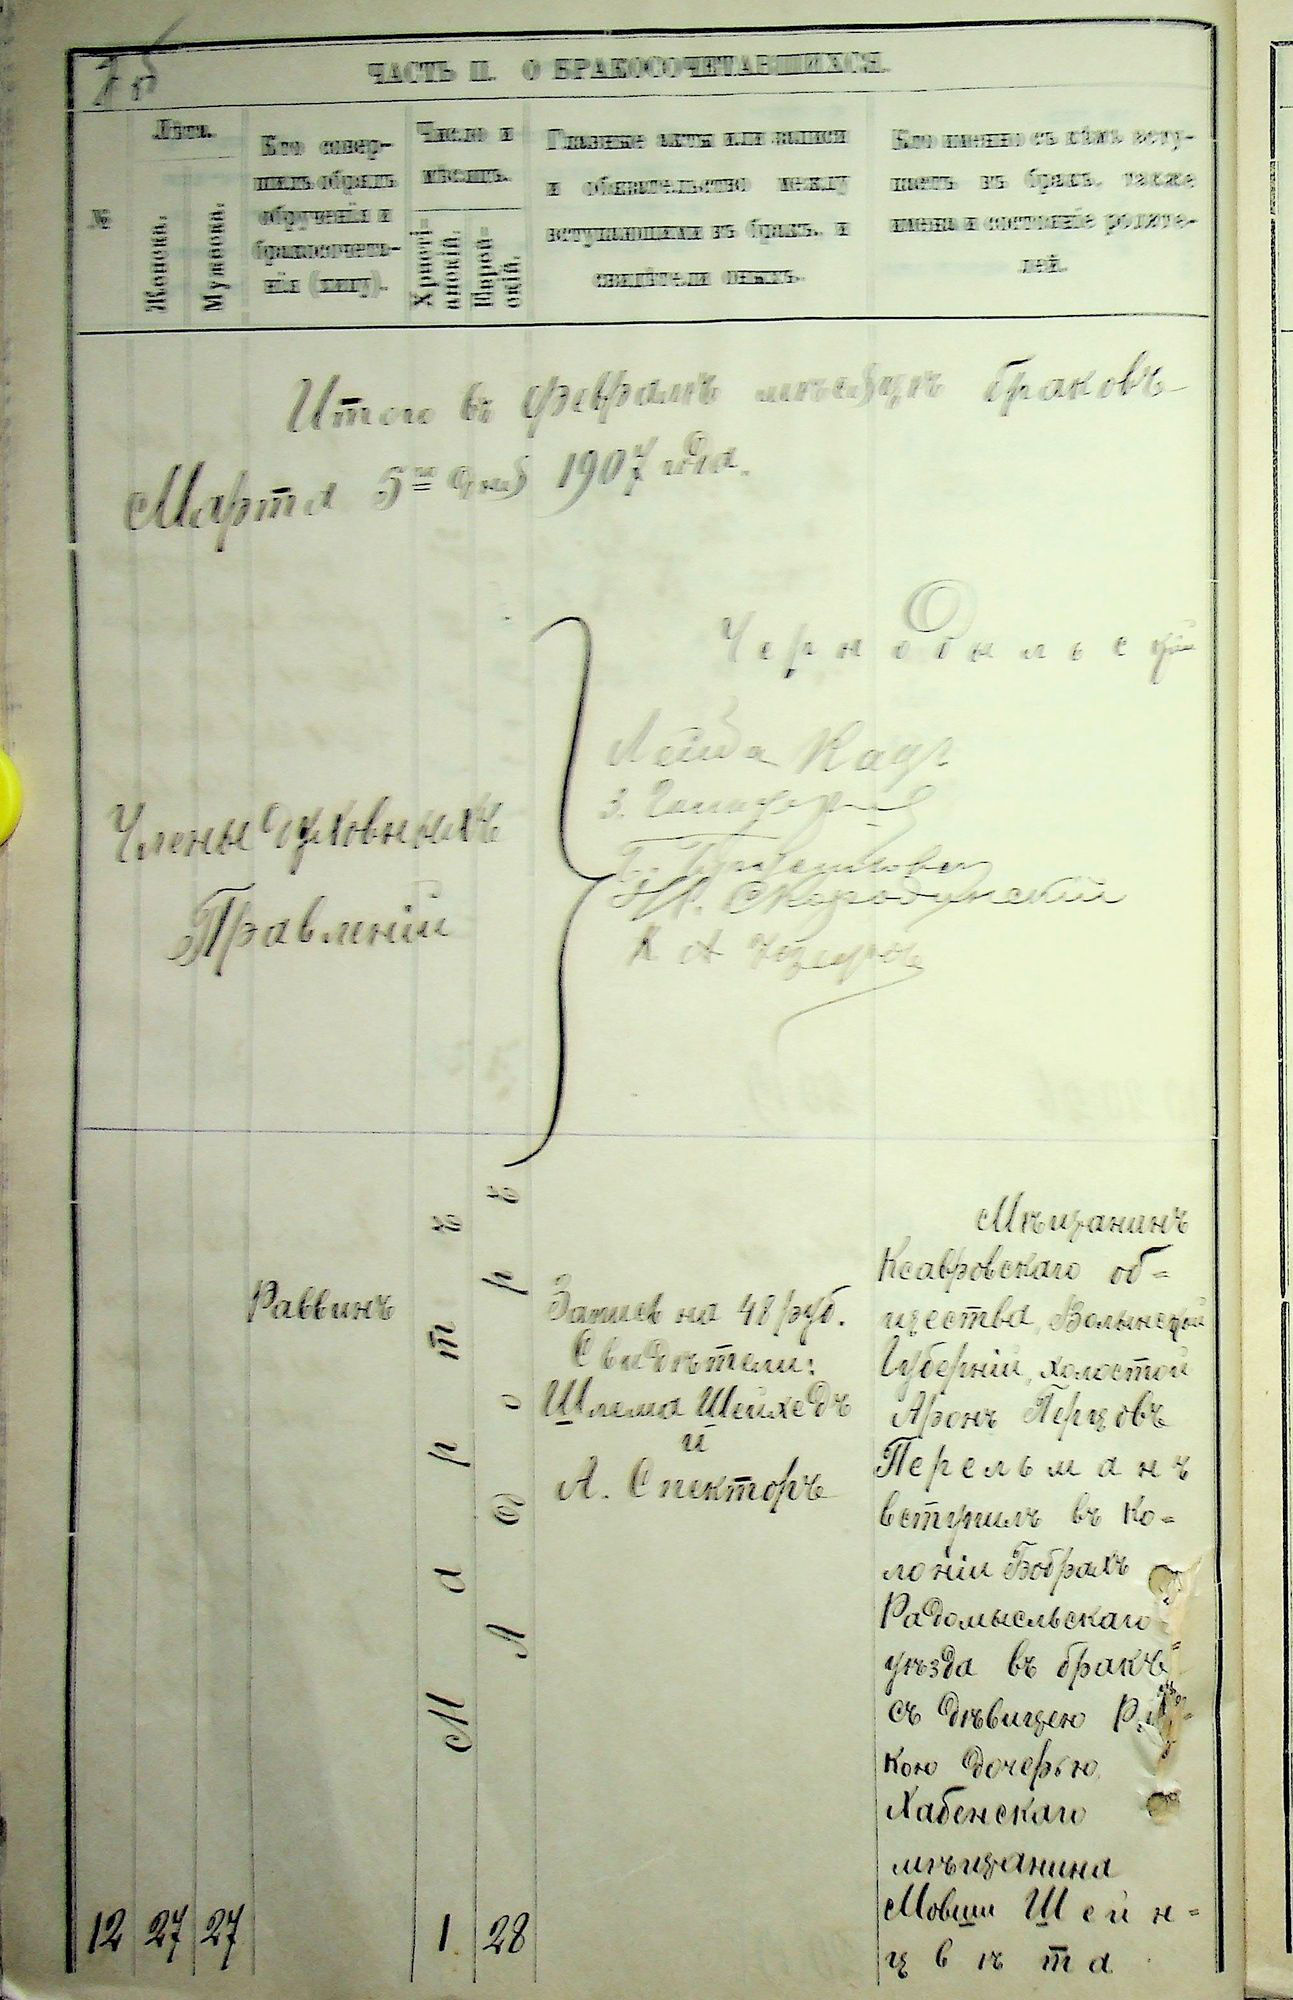 ЧАСТЬ II. О БРАКОСОЧЕТАВШИХСЯ.
№
Лѣта.
Женска.
Мужеска.
Кто совер-
шилъ обрядъ
обрученія и
бракосочета-
нія
Число и
мѣсяцъ.
Христі-
анскій.
Еврей-
скій.
Главные акты или записи
и обязательство между
вступающими въ бракъ, и
свидѣтели оныхъ.
Кто именно съ кѣмъ всту-
паетъ въ бракъ, также
имена и состояніе родите-
лей.
Итого въ Февралѣ мѣсяцѣ браковъ
Марта 5го дня 1907 года.
Члены Духовныхъ
Правленій
Чернобыльскій
Лейба
З.
Скородинскій
Раввинъ
Мартъ
Адоръ
Запись на 48 руб.
Свидѣтели:
Шлема Шейхедъ
и
А. Спекторъ
Мѣщанинъ
Ксавровскаго об=
щества, Волынской
Губерніи, холостой
Аронъ Перцовъ
Перельманъ
вступилъ въ ко=
лоніи Бобрахъ
Радомысльскаго
уѣзда въ бракъ
съ дѣвицею
кою дочерью
Хабенскаго
мѣщанина
Мовши Шейн=
цвѣта
12 27 27 1. 28